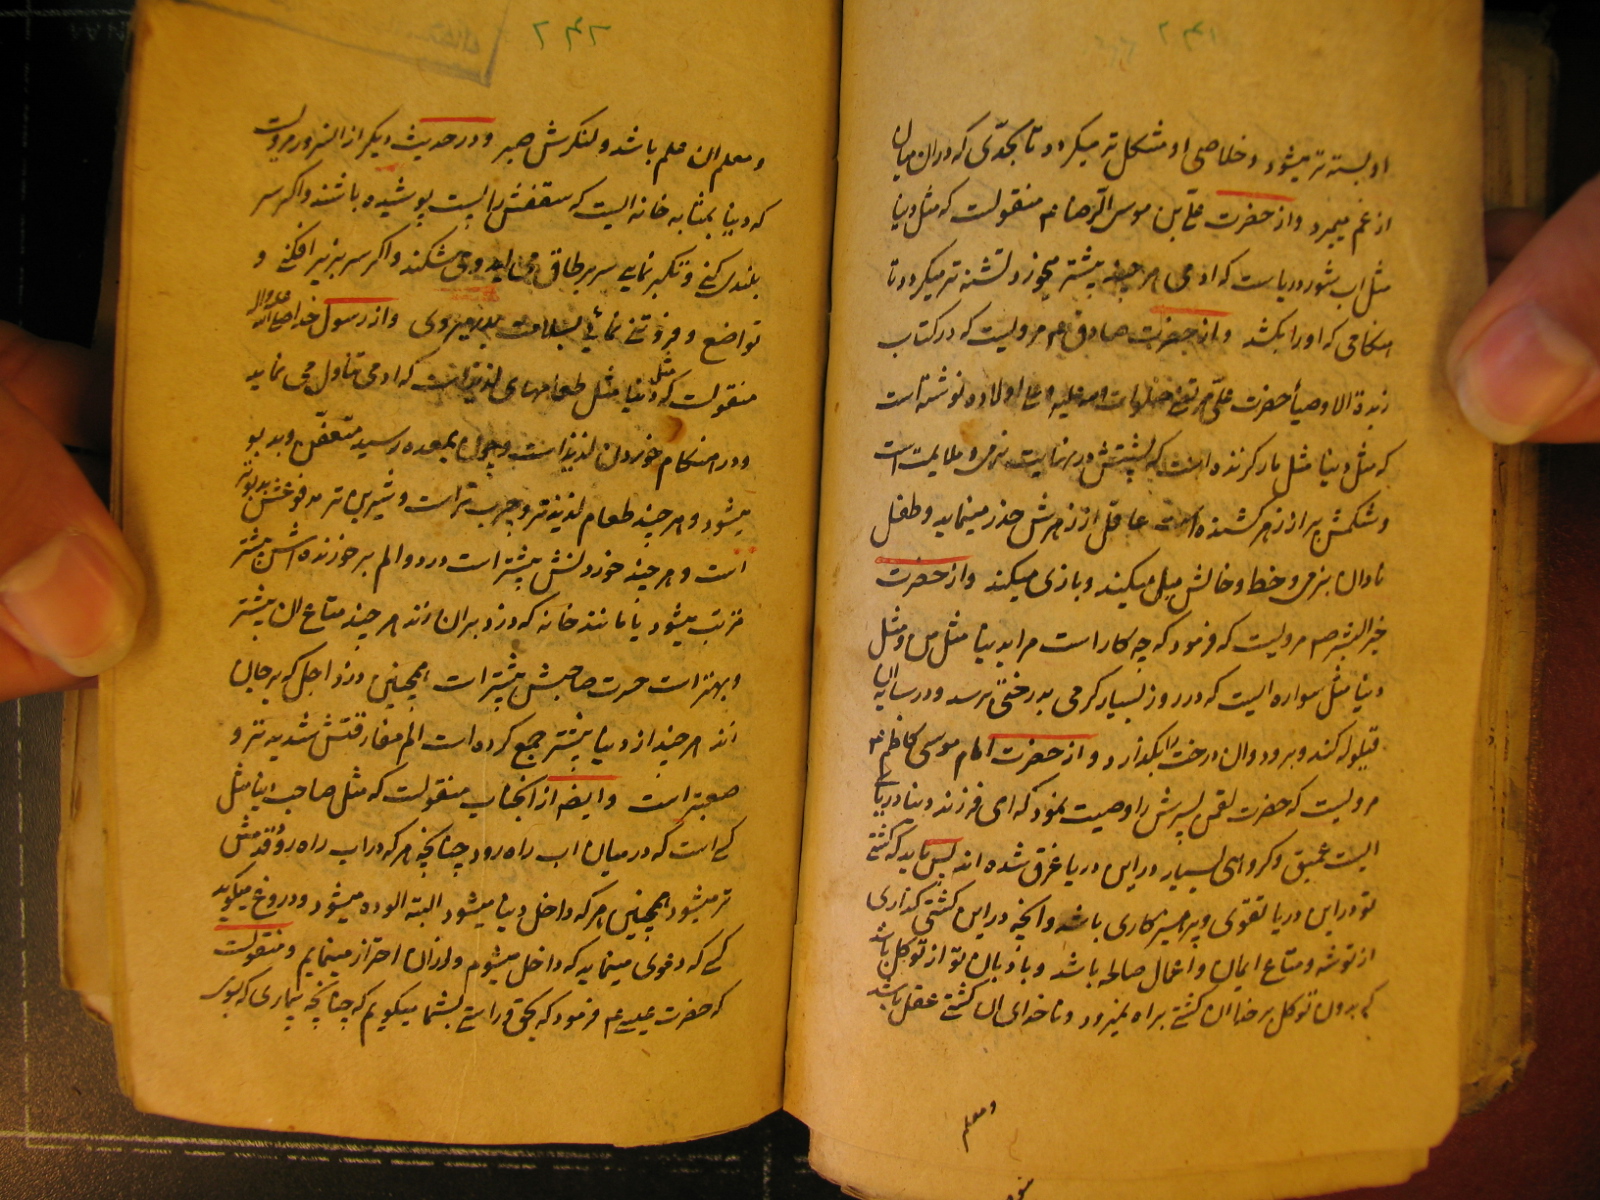 ۲۴۱
او بسته تر میشود و خلاصی او مشکل تر میکردد تا بحدی که در ان میان
از غم میمرد و از حضرت علی بن موسی الرضا عم منقولست که مثل دنیا
مثل اب شور دریاست که ادمی هر چند بیشتر میخورد تشنه تر میکردد تا
هنکامی که او را بکشد و از حضرت صادق عم مرویست که در کتاب
زبدة الاوصیا حضرت علی مرتضی صلوات الله علیه و علی اولاده نوشته است
که مثل دنیا مثل مار کزنده است که پشتش در نهایت نرمی و ملایمت است
و شکمش پر از زهر کشنده است عاقل از زهرش حذر مینماید و طفل
نادان بنرمی و خط و خالش میل میکند و بازی میکند و از حضرت
خیر البشر صم مرویست که فرمود که چه کار است مرا بدنیا مثل من و مثل
دنیا مثل سواره ایست که در روز بسیار کرمی بدرختی برسد و در سایه ان
قیلوله کند و برود و ان درخت را بکذارد و از حضرت امام موسی کاظم عم
مرویست که حضرت لقمن پسرش را وصیت نمود که ای فرزند دنیا دریای
ایست عمیق و کروهی بسیار در این دریا غرق شده اند پس باید که کشتی
تو در این دریا تقوی و پرهیزکاری باشد و انچه در این کشتی کذاری
از توشه و متاع ایمان و اعمال صالحه باشد و بادبان تو از توکل باشد
که بدون توکل بر خدا ان کشتی براه نمیرود و ناخدای ان کشتی عقل باشد
و معلم
۲۴۲
و معلم ان علم باشد و لنکرش صبر و در حدیث دیکر از انسرور مرویست
که دنیا بمثابه خانه ایست که سقفش را پست پوشیده باشند و اکر سر
بلند کنی و تکبر نمایی سر بر طاق می اید و می شکند و اکر سر بزیر افکنی و
تواضع و فروتنی نمائی بسلامت بدر میروی و از رسول خدا صلی الله علیه و اله
منقولست که مثل دنیا مثل طعامهای لذیذ است که ادمی تناول می نماید
و در هنکام خوردن لذیذ است و چون بمعده رسید متعفن و بد بو
میشود و هر چند طعام لذیذتر و چرب تر است و شیرین تر مدفوعش بد بوتر
است و هر چند خوردنش بیشتر است درد و الم بر خورنده اش بیشتر
مترتب میشود یا مانند خانه که دزد بران زند هر چند متاع ان بیشتر
و بهتر است حسرت صاحبش بیشتر است همچنین دزد اجل که بر جان
زند هر چند از دنیا بیشتر جمع کرده است الم مفارقتش شدیدتر و
صعبتر است و ایضا از انجناب منقولست که مثل صاحب دنیا مثل
کسی است که در میان اب راه رود چنانچه هر که در اب راه رود قدمش
تر میشود همچنین هر که داخل دنیا میشود البته الوده میشود و دروغ میکوید
کسی که دعوی مینماید که داخل میشوم و از ان احتراز مینمایم و منقولست
که حضرت عیسی عم فرمود که بحق و راستی بشما میکویم که چنانچه بیماری که بسوی